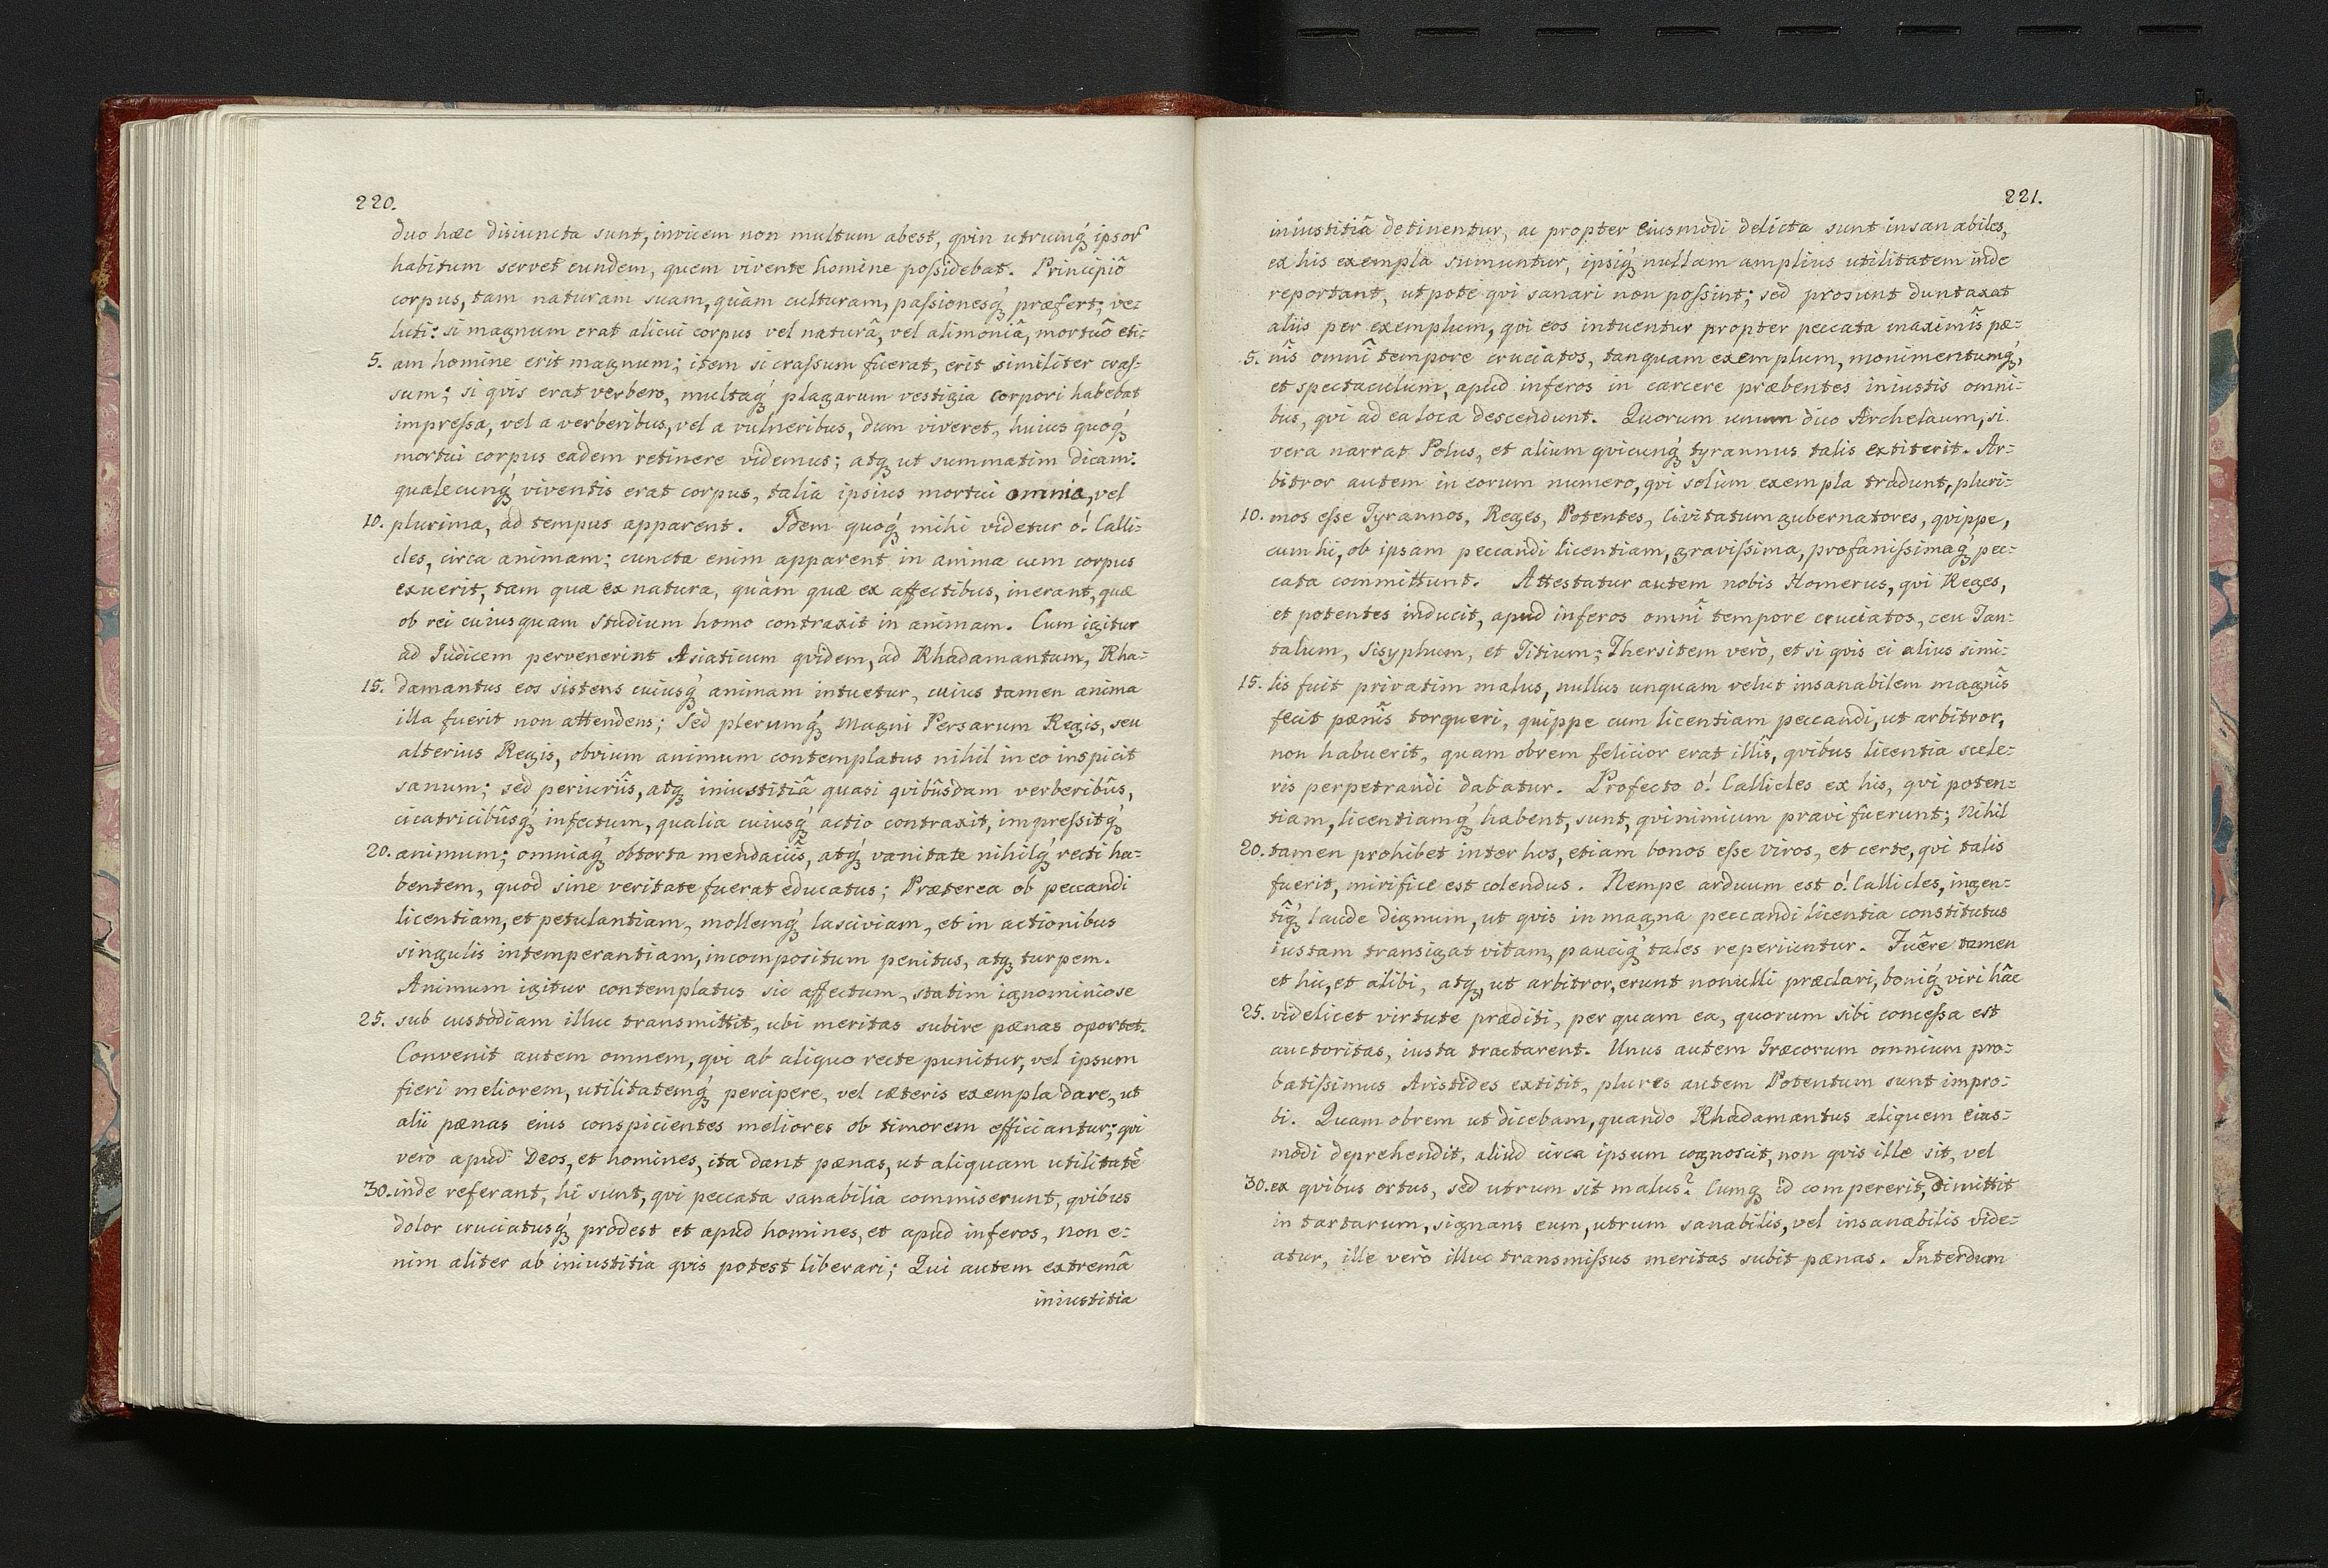 220.
duo hæc disiuncta sunt, invicem non multum abest, qvin utrumq́ʒ ipsor̃
habitum servet eundem, quem vivente homine poſsidebat. Principiô
corpus, tam naturam suam, quàm culturam, paſsionesq́ʒ præfert; ve:
luti: si magnum erat alicui corpus vel naturâ, vel alimoniâ, mortuô eti:
5. am homine erit magnum; item si craſsum fuerat, erit similiter craſ:
sum; si qvis erat verbero, multaq́ʒ plagarum vestigia corpori habebat
impreſsa, vel a verberibus, vel a vulneribus, dum viveret, huius quoq́ʒ
mortui corpus eadem retinere videmus; atqʒ ut summatim dicam:
qualecunq́ʒ viventis erat corpus, talia ipsius mortui omnia, vel
10. plurima, ad tempus apparent. Idem quoq́ʒ mihi videtur ó! Calli:
cles, circa animam; cuncta enim apparent in anima cum corpus
exuerit, tam quæ ex natura, quàm quæ ex affectibus, inerant, quæ
ob rei cuiusquam studium homo contraxit in animam. Cum igitur
ad Iudicem pervenerint Asiaticum qvidem, ad Rhadamantum, Rha:
15. damantus eos sistens cuiusq́ʒ animam intuetur, cuius tamen anima
illa fuerit non attendens; Sed plerumq́ʒ Magni Persarum Regis, seu
alterius Regis, obvium animum contemplatus nihil in eo inspicit
sanum; sed periurîis, atqʒ iniustitiâ quasi qvibûsdam verberibûs,
cicatricibûsq́ʒ infectum, qualia cuiusq́ʒ actio contraxit, impreſsitq́ʒ
20. animum; omniaq́ʒ obtorta mendaciîs, atq́ʒ vanitate nihilq́ʒ recti ha:
bentem, quod sine veritate fuerat educatus; Præterea ob peccandi
licentiam, et petulantiam, mollemq́ʒ lasciviam, et in actionibus
singulis intemperantiam, incompositum penitus, atqʒ turpem.
Animum igitur contemplatus sic affectum, statim ignominiose
25. sub custodiam illuc transmittit, ubi meritas subire pænas oportet.
Convenit autem omnem, qvi ab aliquo recte punitur, vel ipsum
fieri meliorem, utilitatemq́ʒ percipere, vel cæteris exempla dare, ut
alii pænas eius conspicientes meliores ob timorem efficiantur; qvi
verò apud Deos, et homines, ita dant pænas, ut aliquam utilitatẽ
30. inde referant, hi sunt, qvi peccata sanabilia commiserunt, qvibus
dolor cruciatusq́ʒ prodest et apud homines, et apud inferos, non e:
nim aliter ab iniustitia qvis potest liberari; Qui autem extremâ
iniustitia
221.
iniustitiâ detinentur, ac propter Eiusmodi delicta sunt insanabiles,
ex his exempla sumuntur, ipsiq́ʒ nullam amplius utilitatem inde
reportant, utpote qvi sanari non poſsint; sed prosunt duntaxat
aliis per exemplum, qvi eos intuentur propter peccata maximîs pæ:
5. nîs omnî tempore cruciatos, tanquam exemplum, monimentumq́ʒ,
et spectaculum, apud inferos in carcere præbentes iniustis omni:
bus, qvi ad ea loca descendunt. Quorum unum duo Archelaum, si
vera narrat Polus, et alium qvicunq́ʒ tyrannus talis extiterit. Ar:
bitror autem in eorum numero, qvi solum exempla tradunt, pluri:
10. mos eſse Tyrannos, Reges, Potentes, Civitatum gubernatores, qvippe,
cum hi, ob ipsam peccandi licentiam, graviſsima, profaniſsimaqʒ pec:
cata committunt. Attestatur autem nobis Homerus, qvi Reges,
et potentes inducit, apud inferos omnî tempore cruciatos, ceu Tan:
talum, Sisyphum, et Titium; Thersitem verò, et si qvis ei alius simi:
15. lis fuit privatim malus, nullus unquam velut insanabilem magnîs
fecit pænîs torqueri, quippe cum licentiam peccandi, ut arbitror,
non habuerit, quam obrem felicior erat illîs, qvibus licentia scele:
ris perpetrandi dabatur. Profecto ó! Callicles ex his, qvi poten:
tiam, licentiamq́ʒ habent, sunt, qvi nimium pravi fuerunt; Nihil
20. tamen prohibet inter hos, etiam bonos eſse viros, et certe, qvi talis
fuerit, mirifice est colendus. Nempe arduum est ó! Callicles, ingen:
tîq́ʒ laude dignum, ut qvis in magna peccandi licentia constitutus
iustam transigat vitam, pauciq́ʒ tales reperiuntur. Fuêre tamen
et hic, et alibi, atqʒ, ut arbitror, erunt nonulli præclari, boniq́ʒ viri hâc
25. videlicet virtute præditi, per quam ea, quorum sibi conceſsa est
auctoritas, iusta tractarent. Unus autem Græcorum omnium pro:
batiſsimus Aristides extitit, plures autem Potentum sunt impro:
bi. Quam obrem ut dicebam, quando Rhadamantus aliquem eius:
modi deprehendit, aliud circa ipsum cognoscit, non qvis ille sit, vel
30. ex qvibus ortus, sed utrum sit malus? Cumqʒ id compererit, dimittit
in tartarum, signans eum, utrum sanabilis, vel insanabilis vide:
atur, ille verò illuc transmiſsus meritas subit pænas. Interdum